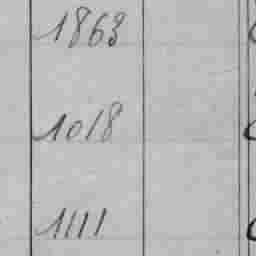 1863
1018
1111